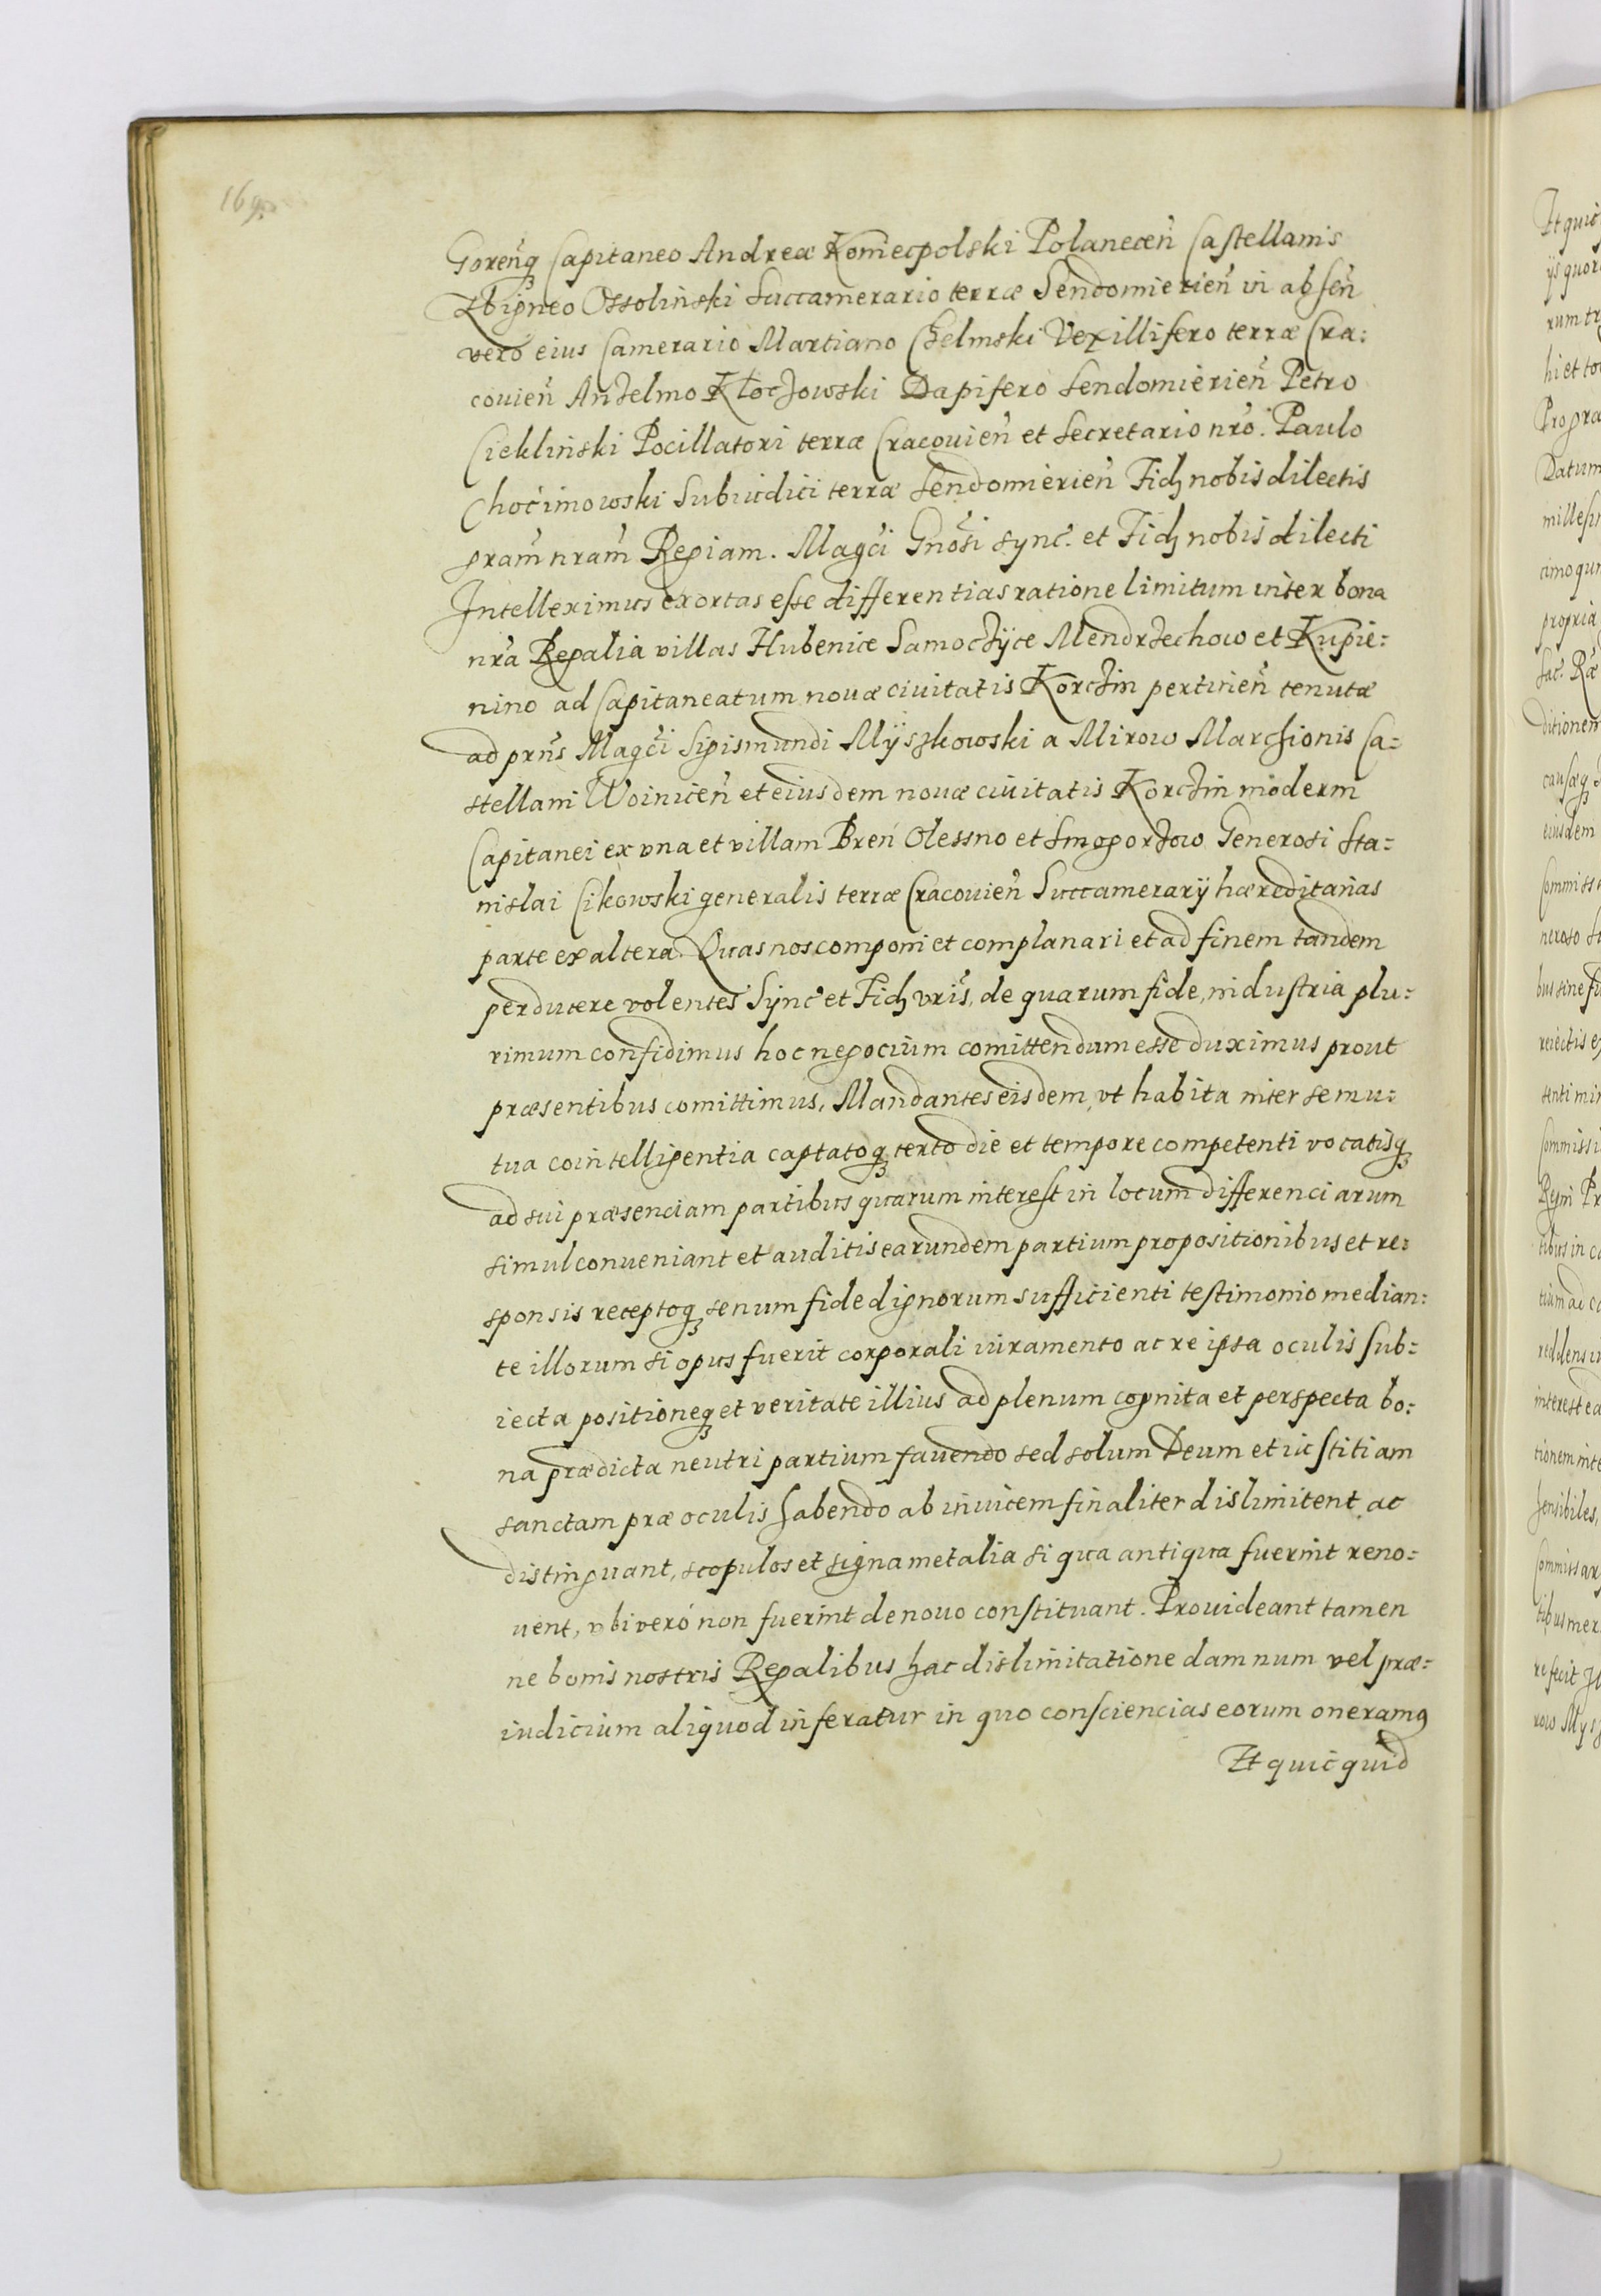 169
Goreñq Capitaneo Andreæ Koniecpolski Polanecen̄ Castellanis
Zbigneo Ossoliński Succamerario terræ Sendomierien̄ in absen̄
vero eius Camerario Martiano Chelmski Vexillifero terræ Cra:
couien̄ Anzelmo Kłoczowski Dapifero Sendomierien̄ Petro
Ciekliński Pocillatori terræ Cracouien̄ et Secretario nr̄o. Paulo
Chocimowski Subiudici terræ Sendomierien̄ Fidz nobis dilectis
gram̄ nram̄ Regiam. Magc̄i Gnōsi sync̄. et Fidz nobis dilecti
Intelleximus exortas esse differentias ratione limitum inter bona
nr̄a Regalia villas Hubenice Samoczÿce Mendrzechow et Kupie:
nino ad Capitaneatum nouæ ciuitatis Korczin pertinen̄ tenutæ
ad prn̄s Magc̄i Sigismundi Mÿszkowski a Mirow Marchionis Ca:
stellani Woinicen̄ et eiusdem nouæ ciuitatis Korczin moderni
Capitanei ex vna et villam Breń Olessno et Smogorzow Generosi Sta:
nislai Cikowski generalis terræ Cracouien̄ Succamerarÿ hæreditarias
parte ex altera. Quas nos componi et complanari et ad finem tandem
perducere volentes Sÿnc̄ et Fidz vr̄is, de quarum fide, industria plu:
rimum confidimus hoc negocium comittendum esse duximus prout
præsentibus comittimus, Mandantes eisdem, vt habita inter se mu:
tua cointelligentia captatoq certo die et tempore competenti vocatisq
ad sui præsenciam partibus quarum interest in locum differenciarum
simul conueniant et auditis earundem partium propositionibus et re:
sponsis receptoq senum fide dignorum sufficienti testimonio median:
te illorum si opus fuerit corporali iuramento ac re ipsa oculis sub:
iecta positioneq et veritate illius ad plenum cognita et perspecta bo:
na prædicta neutri partium fauendo sed solum Deum et iustitiam
sanctam præ oculis habendo ab inuicem finaliter dislimitent ac
distinguant, scopulos et signa metalia si qua antiqua fuerint reno:
uent, vbi veró non fuerint de nouo constituant. Prouideant tamen
ne bonis nostris Regalibus hac dislimitatione damnum vel præ:
iudicium aliquod inferatur in quo consciencias eorum oneramq
Et quicquid